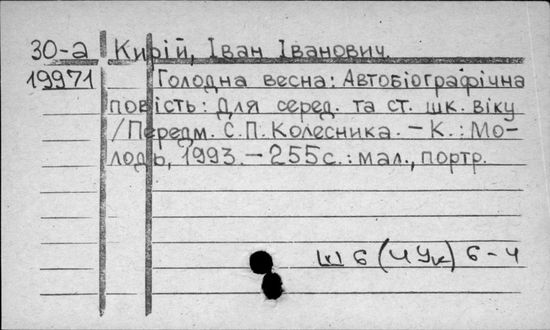 30-а Кирій, Іван Іванович.
19971 Голодна весна: Автобіографічна
повість: Для серед. та ст. шк. віку
/Передм. С.П. Колесника. – К.: Мо-
лодь, 1993. – 255с.: мал., портр.
Ш 6 (4 Ук) 6 - 4